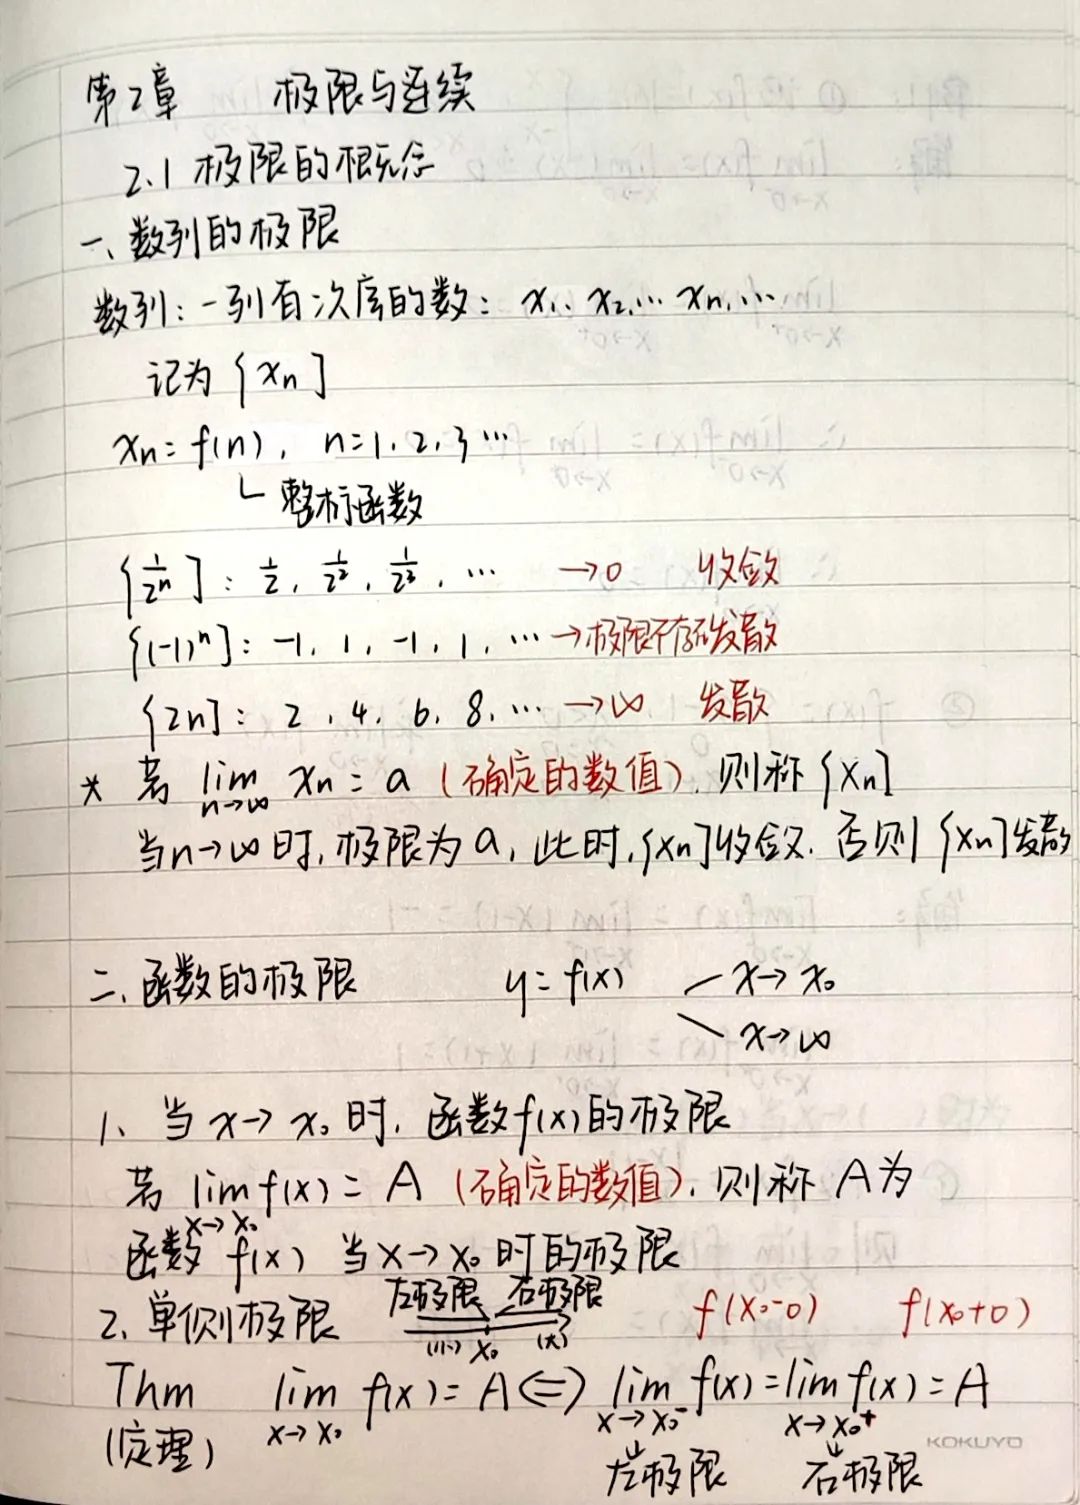 第2章 极限与连续
2.1 极限的概念
一、数列的极限
数列：一列有次序的数：x₁, x₂, … xₙ, …
记为 {xₙ}
xₙ = f(n), n=1, 2, 3 …
└ 整标函数
{1/2ⁿ}：1/2, 1/2², 1/2³, … →0 收敛
{(-1)ⁿ}：-1, 1, -1, 1, … →极限不存在发散
{2n}：2, 4, 6, 8, … →∞ 发散
* 若 lim n→∞ xₙ = a (确定的数值), 则称 {xₙ}
当n→∞时, 极限为a, 此时, {xₙ}收敛. 否则 {xₙ}发散
二、函数的极限 y = f(x) x→x₀
x→∞
1、当 x→x₀ 时, 函数f(x)的极限
若 lim x→x₀ f(x) = A (确定的数值), 则称 A为
函数 f(x) 当 x→x₀ 时的极限
左极限 右极限
2、单侧极限 (小) x₀ (大) f(x₀-0) f(x₀+0)
Thm lim x→x₀ f(x) = A ⇔ lim x→x₀⁻ f(x) = lim x→x₀⁺ f(x) = A
(定理)
KOKUYO
↓ ↓
左极限 右极限